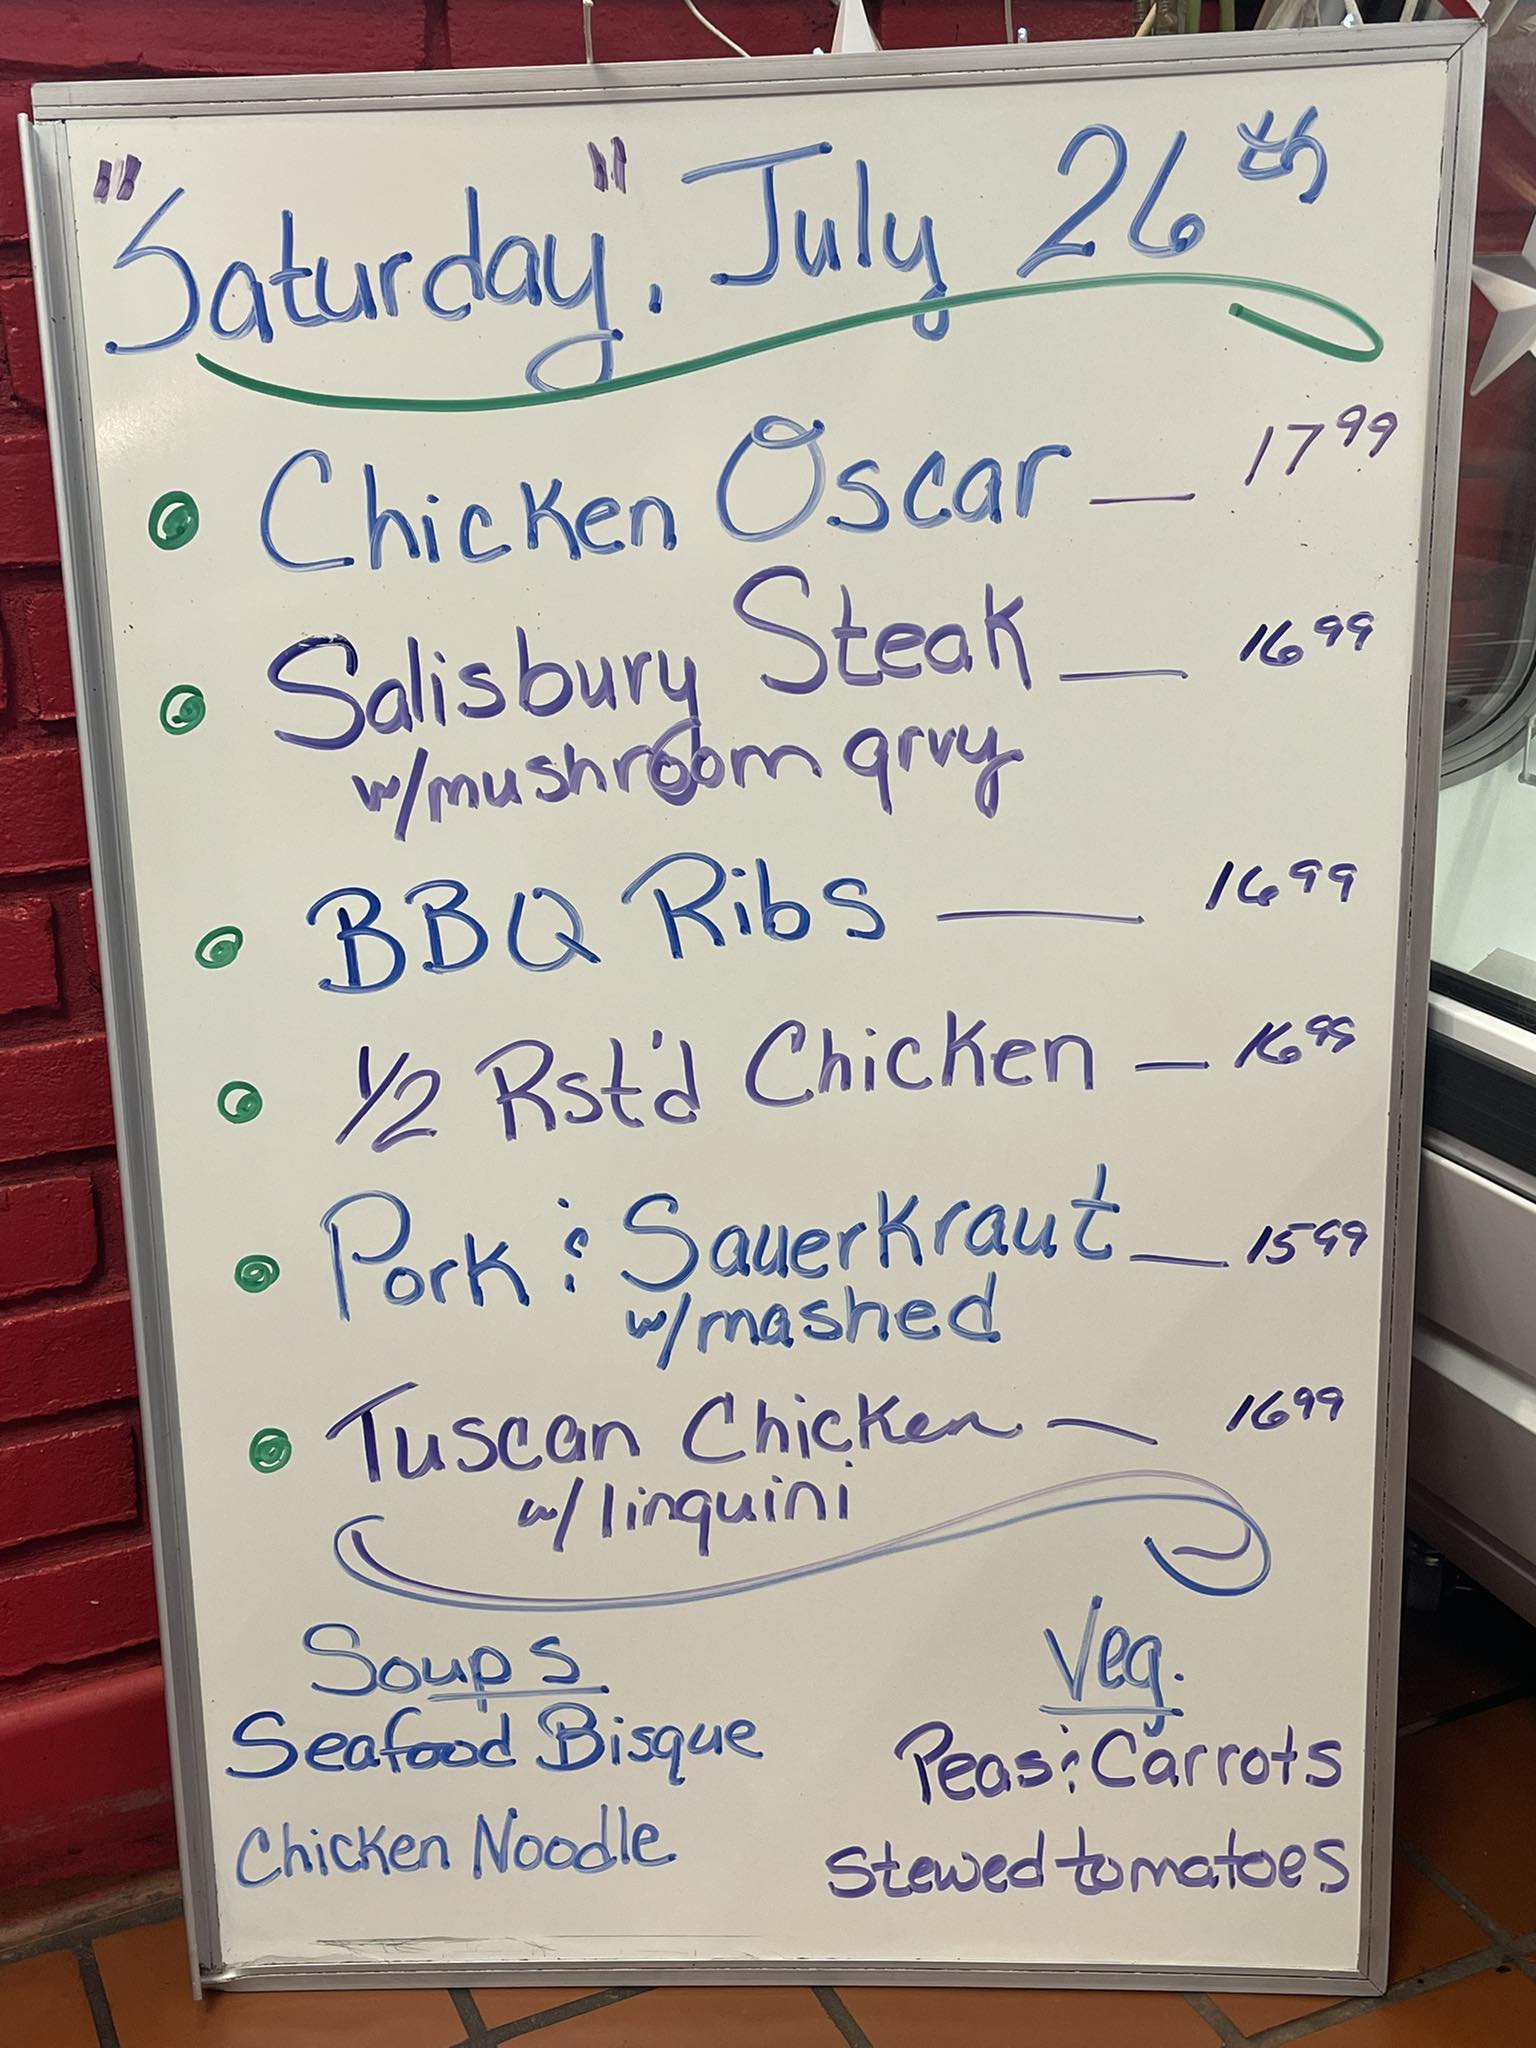 "Saturday", July 26th
Chicken Oscar — 17 99
Salisbury Steak — 16 99
w/mushroom grvy
BBQ Ribs — 16 99
1/2 Rst'd Chicken — 16 99
Pork & Sauerkraut — 15 99
w/mashed
Tuscan Chicken — 16 99
w/linquini
Soups
Seafood Bisque
Chicken Noodle
Veg.
Peas & Carrots
Stewed tomatoes